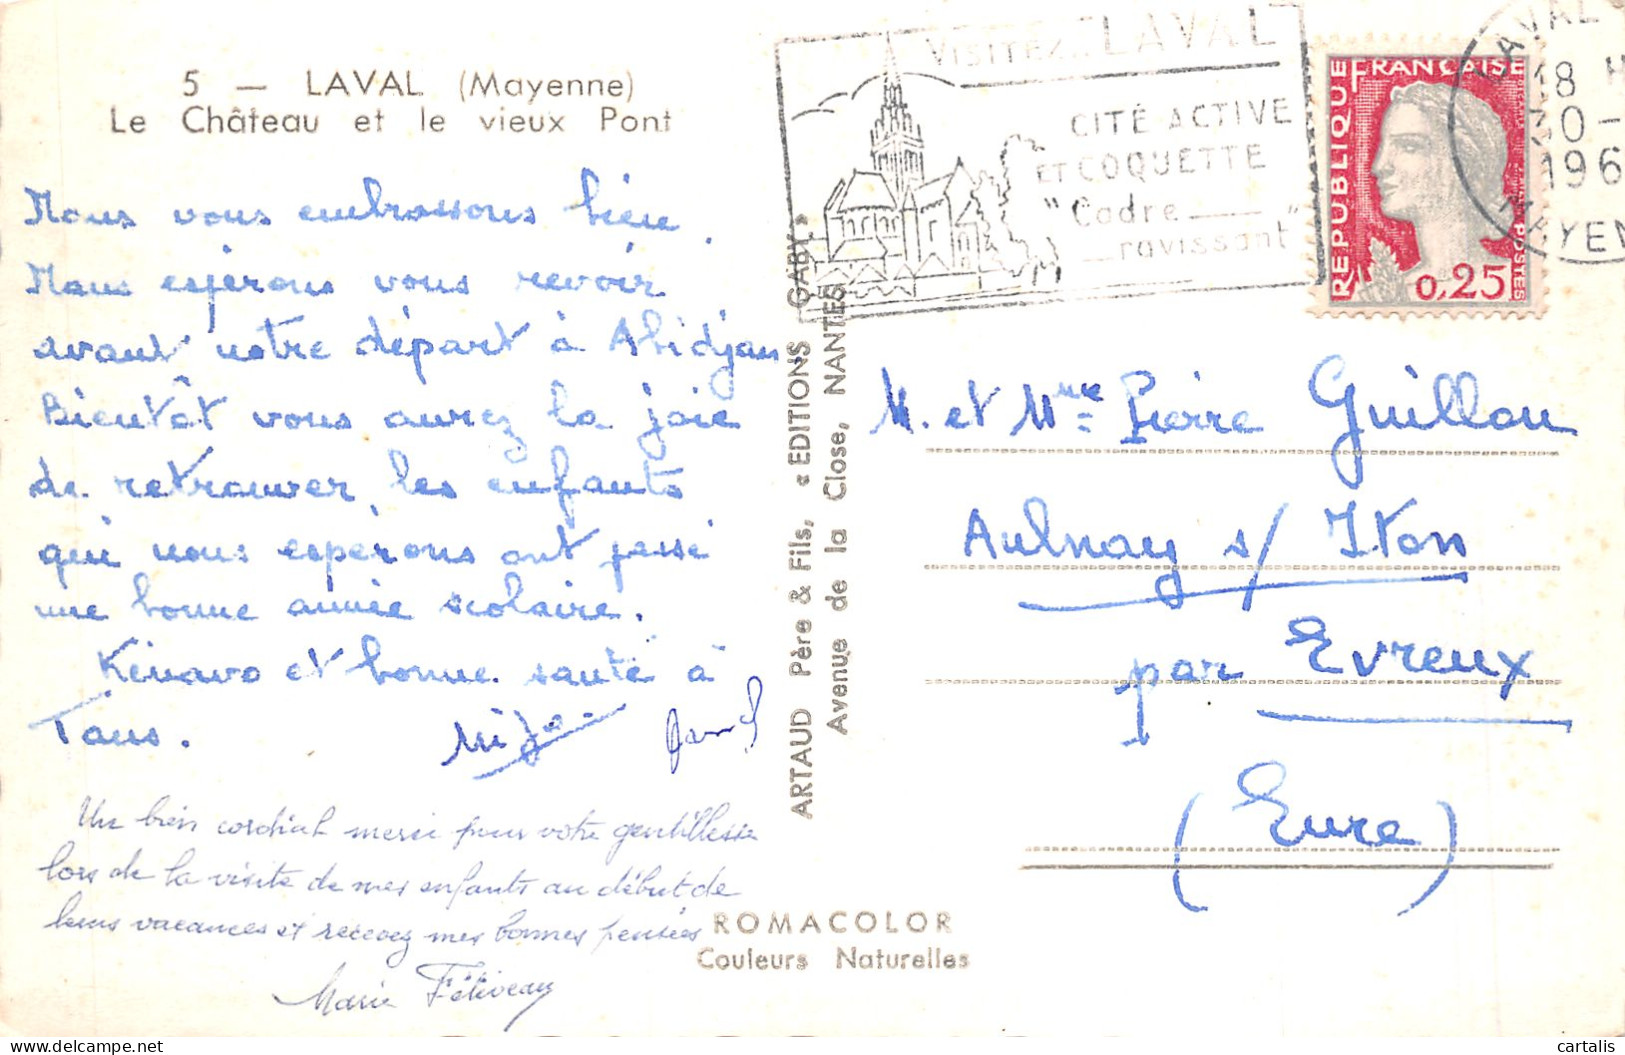 5 — LAVAL (Mayenne)
Le Château et le vieux Pont
Nous vous embrassons bien.
Nous espérons vous revoir
avant notre départ à Abidjan
Bientôt vous aurez la joie
de retrouver les enfants
qui nous espérons ont passé
une bonne année scolaire.
Kenavo et bonne santé à
Tous.
Un bien cordial merci pour votre gentillesse
lors de la visite de mes enfants au début de
leurs vacances et recevez mes bonnes pensées
Marie Féliveau
ARTAUD Père & Fils, « EDITIONS GABY »
Avenue de la Close, NANTES
ROMACOLOR
Couleurs Naturelles
VISITEZ... LAVAL
CITÉ ACTIVE
ET COQUETTE
"Cadre
ravissant"
REPUBLIQUE FRANÇAISE
POSTES
0,25
LAVAL
18 H
30-
196
MAYEN
M. et Mme Pierre Guillou
Aulnay s/ Iton
par Evreux
(Eure)
cartalis